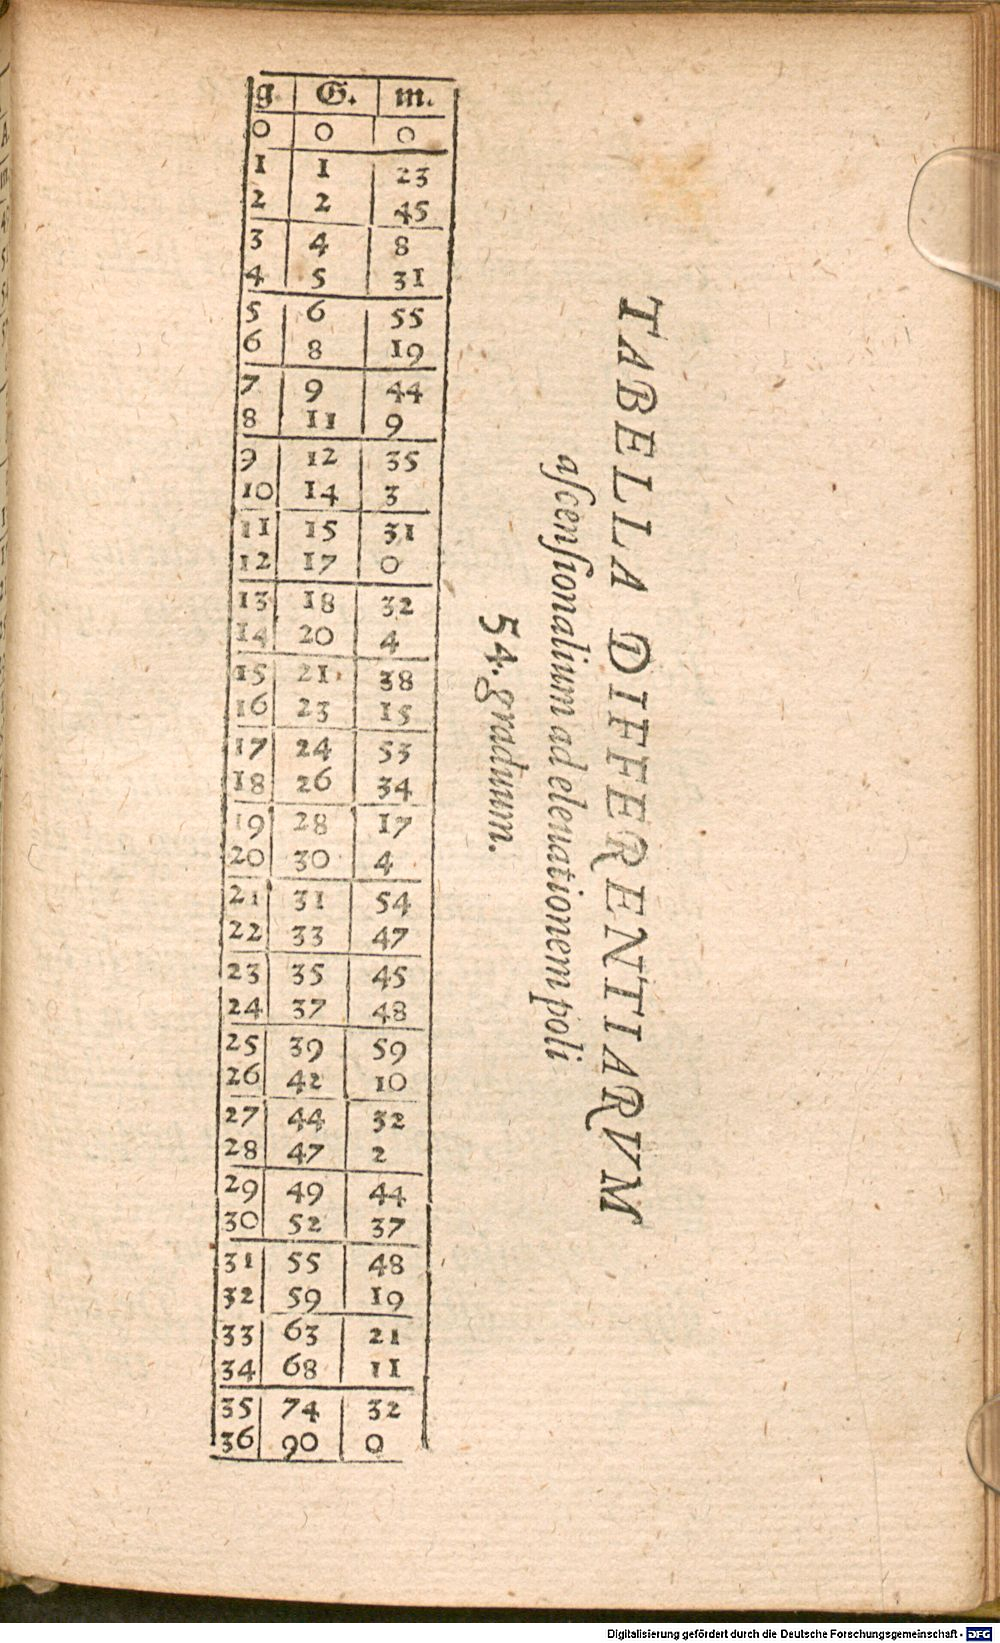 TABELLA DIFFERENTIARVM
aſcenſionalium ad eleuationem poli
54. graduum.
g. G. m.
0 0 0
1 1 23
2 2 45
3 4 8
4 5 31
5 6 55
6 8 19
7 9 44
8 11 9
9 12 35
10 14 3
11 15 31
12 17 0
13 18 32
14 20 4
15 21 38
16 23 15
17 24 53
18 26 34
19 28 17
20 30 4
21 31 54
22 33 47
23 35 45
24 37 48
25 39 59
26 42 10
27 44 32
28 47 2
29 49 44
30 52 37
31 55 48
32 59 19
33 63 21
34 68 11
35 74 32
36 90 0
Digitalisierung gefördert durch die Deutsche Forschungsgemeinschaft - DFG